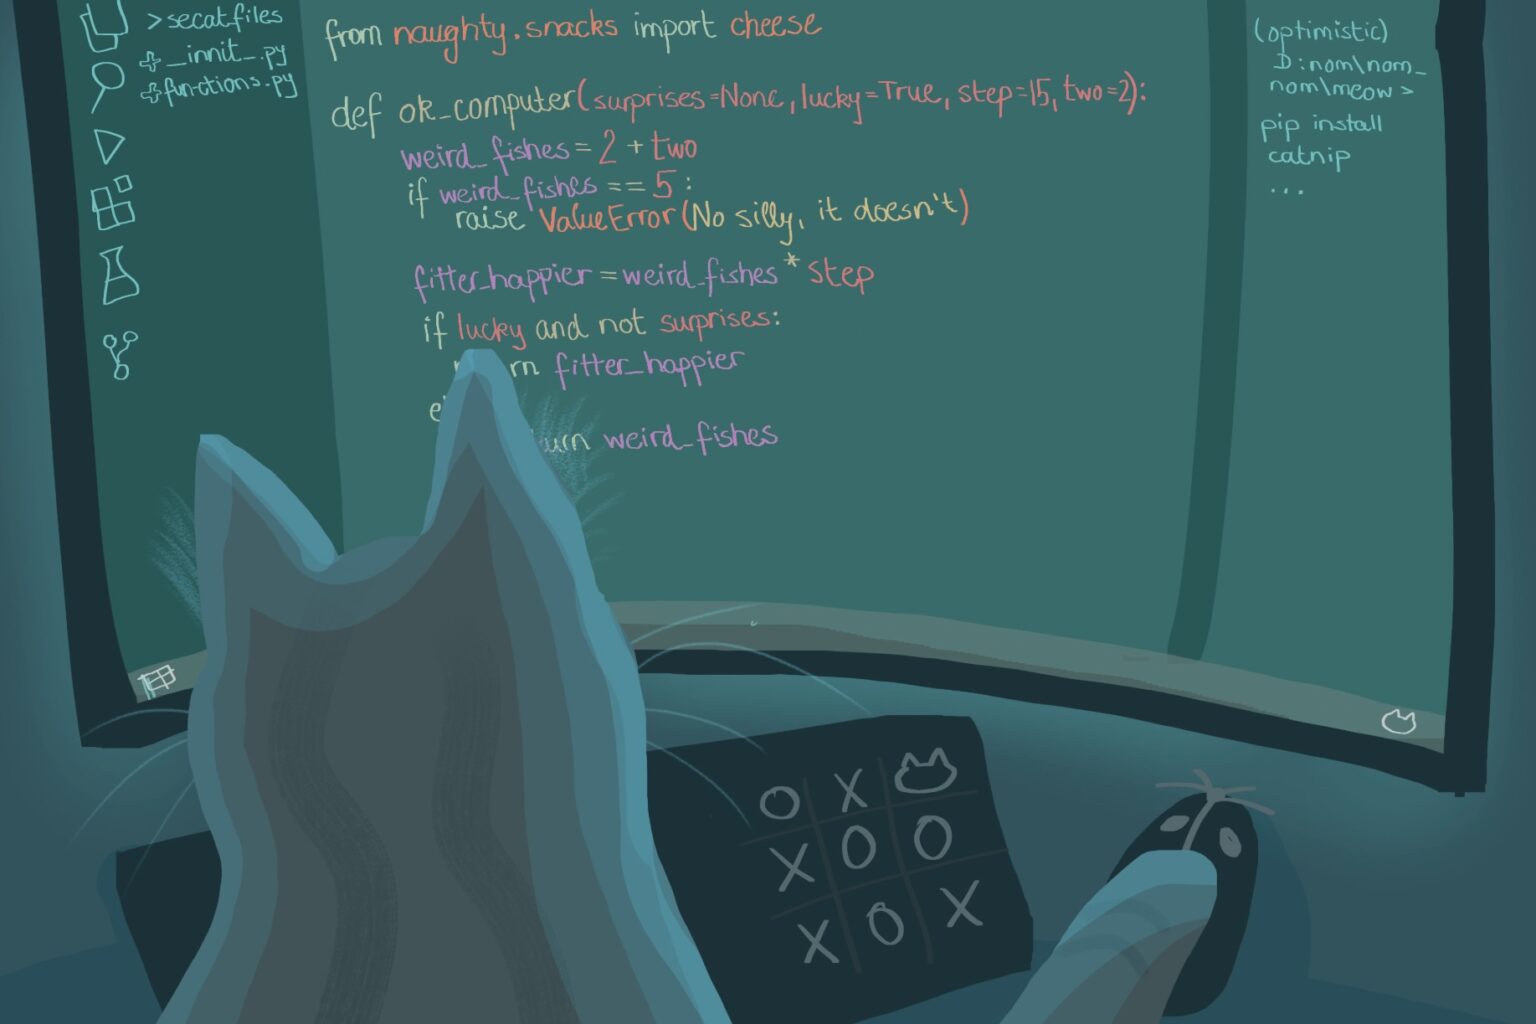 >secatfiles
+_innit_.py
+functions.py
from naughty.snacks import cheese
def ok_computer(surprises=None, lucky=True, step=15, two=2):
weird_fishes = 2 + two
if weird_fishes == 5:
raise ValueError(No silly, it doesn't)
fitter_happier = weird_fishes * step
if lucky and not surprises:
rn fitter_happier
e
urn weird_fishes
(optimistic)
D:nom\nom_
nom\meow >
pip install
catnip
...
O X
X O O
X O X